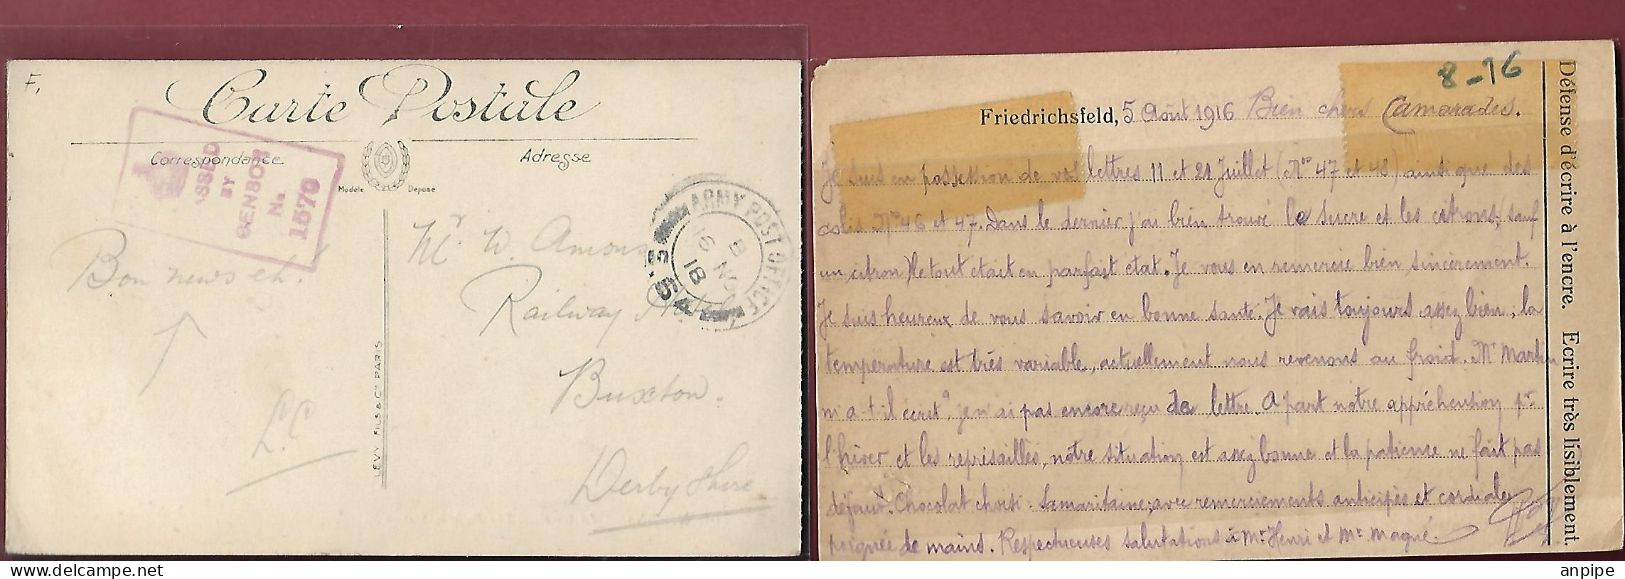 F.
Carte Postale
Correspondance
Adresse
Modèle Déposé
PASSED
BY
CENSOR
No.
1570
ARMY POST OFFICE
8
NO
18
S.54
Bon news eh.
L.C
LEVY FILS & Cie PARIS
Mr W. Amons
Railway
Buxton.
Derbyshire
8-16
Friedrichsfeld, 5 Août 1916 Bien chers Camarades.
Je suis en possession de vos lettres 11 et 21 Juillet (Nos 47 et 48) ainsi que des
colis Nos 46 et 47. Dans le dernier j'ai bien trouvé le sucre et les citrons, (sauf
un citron) le tout etait en parfait etat. Je vous en remercie bien sincèrement.
Je suis heureux de vous savoir en bonne santé. Je vais toujours assez bien, la
temperature est très variable, actuellement nous revenons au froid. Mr Martin
m'a-t-il ecrit? je n'ai pas encore reçu de lettre. A part notre appréhension pr
l'hiver et les represailles, notre situation est assez bonne et la patience ne fait pas
défaut. Chocolat choisi: Samaritaine, avec remerciements anticipés et cordiale
poignée de mains. Respectueuses salutations à Mr Henri et Mr Magné.
Défense d'écrire à l'encre. Ecrire très lisiblement.
delcampe.net
anpipe